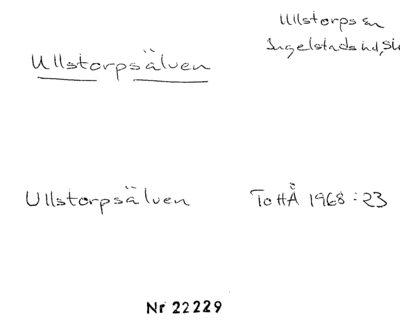 Ullstorps sn
Ingelstads hd, Sk
Ullstorpsälven
Ullstorpsälven ToHÅ 1968:23
Nr 22229